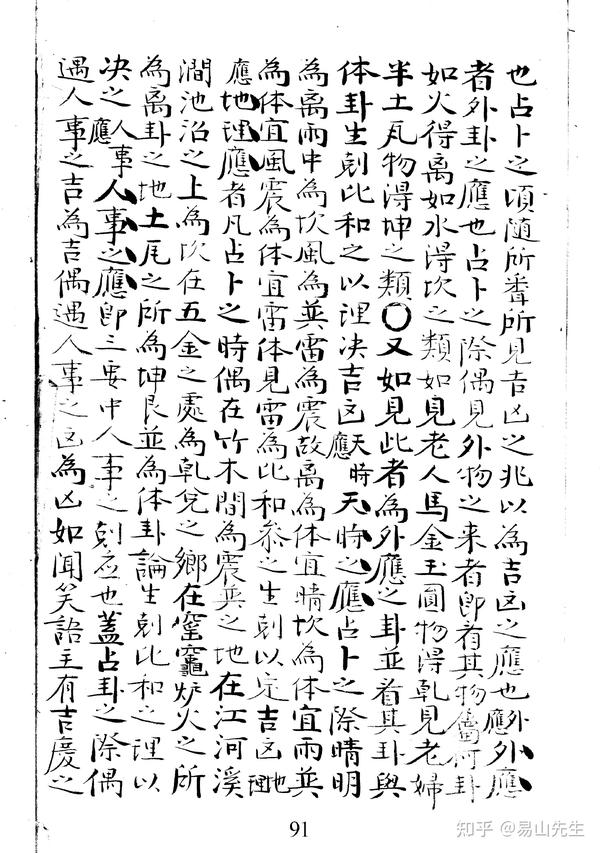 也占卜之頃随所聞所見吉凶之兆以為吉凶之應也外應外應
者外卦之應也占卜之際偶見外物之来者即看其物屬何卦
如火得离如水得坎之類如見老人馬金玉圓物得乹見老婦
半土瓦物得坤之類〇又如見此者為外應之卦並看其卦與
体卦生剋比和之以理决吉凶天時應天時之應占卜之際晴明
為离雨中為坎風為巽雷為震故离為体宜晴坎為体宜雨巽
為体宜風震為体宜雷体見雷為比和叅之生剋以定吉凶地理
應地理應者凡占卜之時偶在竹木間為震巽之地在江河溪
澗池沼之上為坎在五金之處為乹兌之鄉在窑竈炉火之所
為离卦之地土瓦之所為坤艮並為体卦論生剋比和之理以
决之人事應人事之應即三要中人事之剋应也蓋占卦之際偶
遇人事之吉為吉偶遇人事之凶為凶如聞笑語主有吉慶之
91
知乎 @易山先生